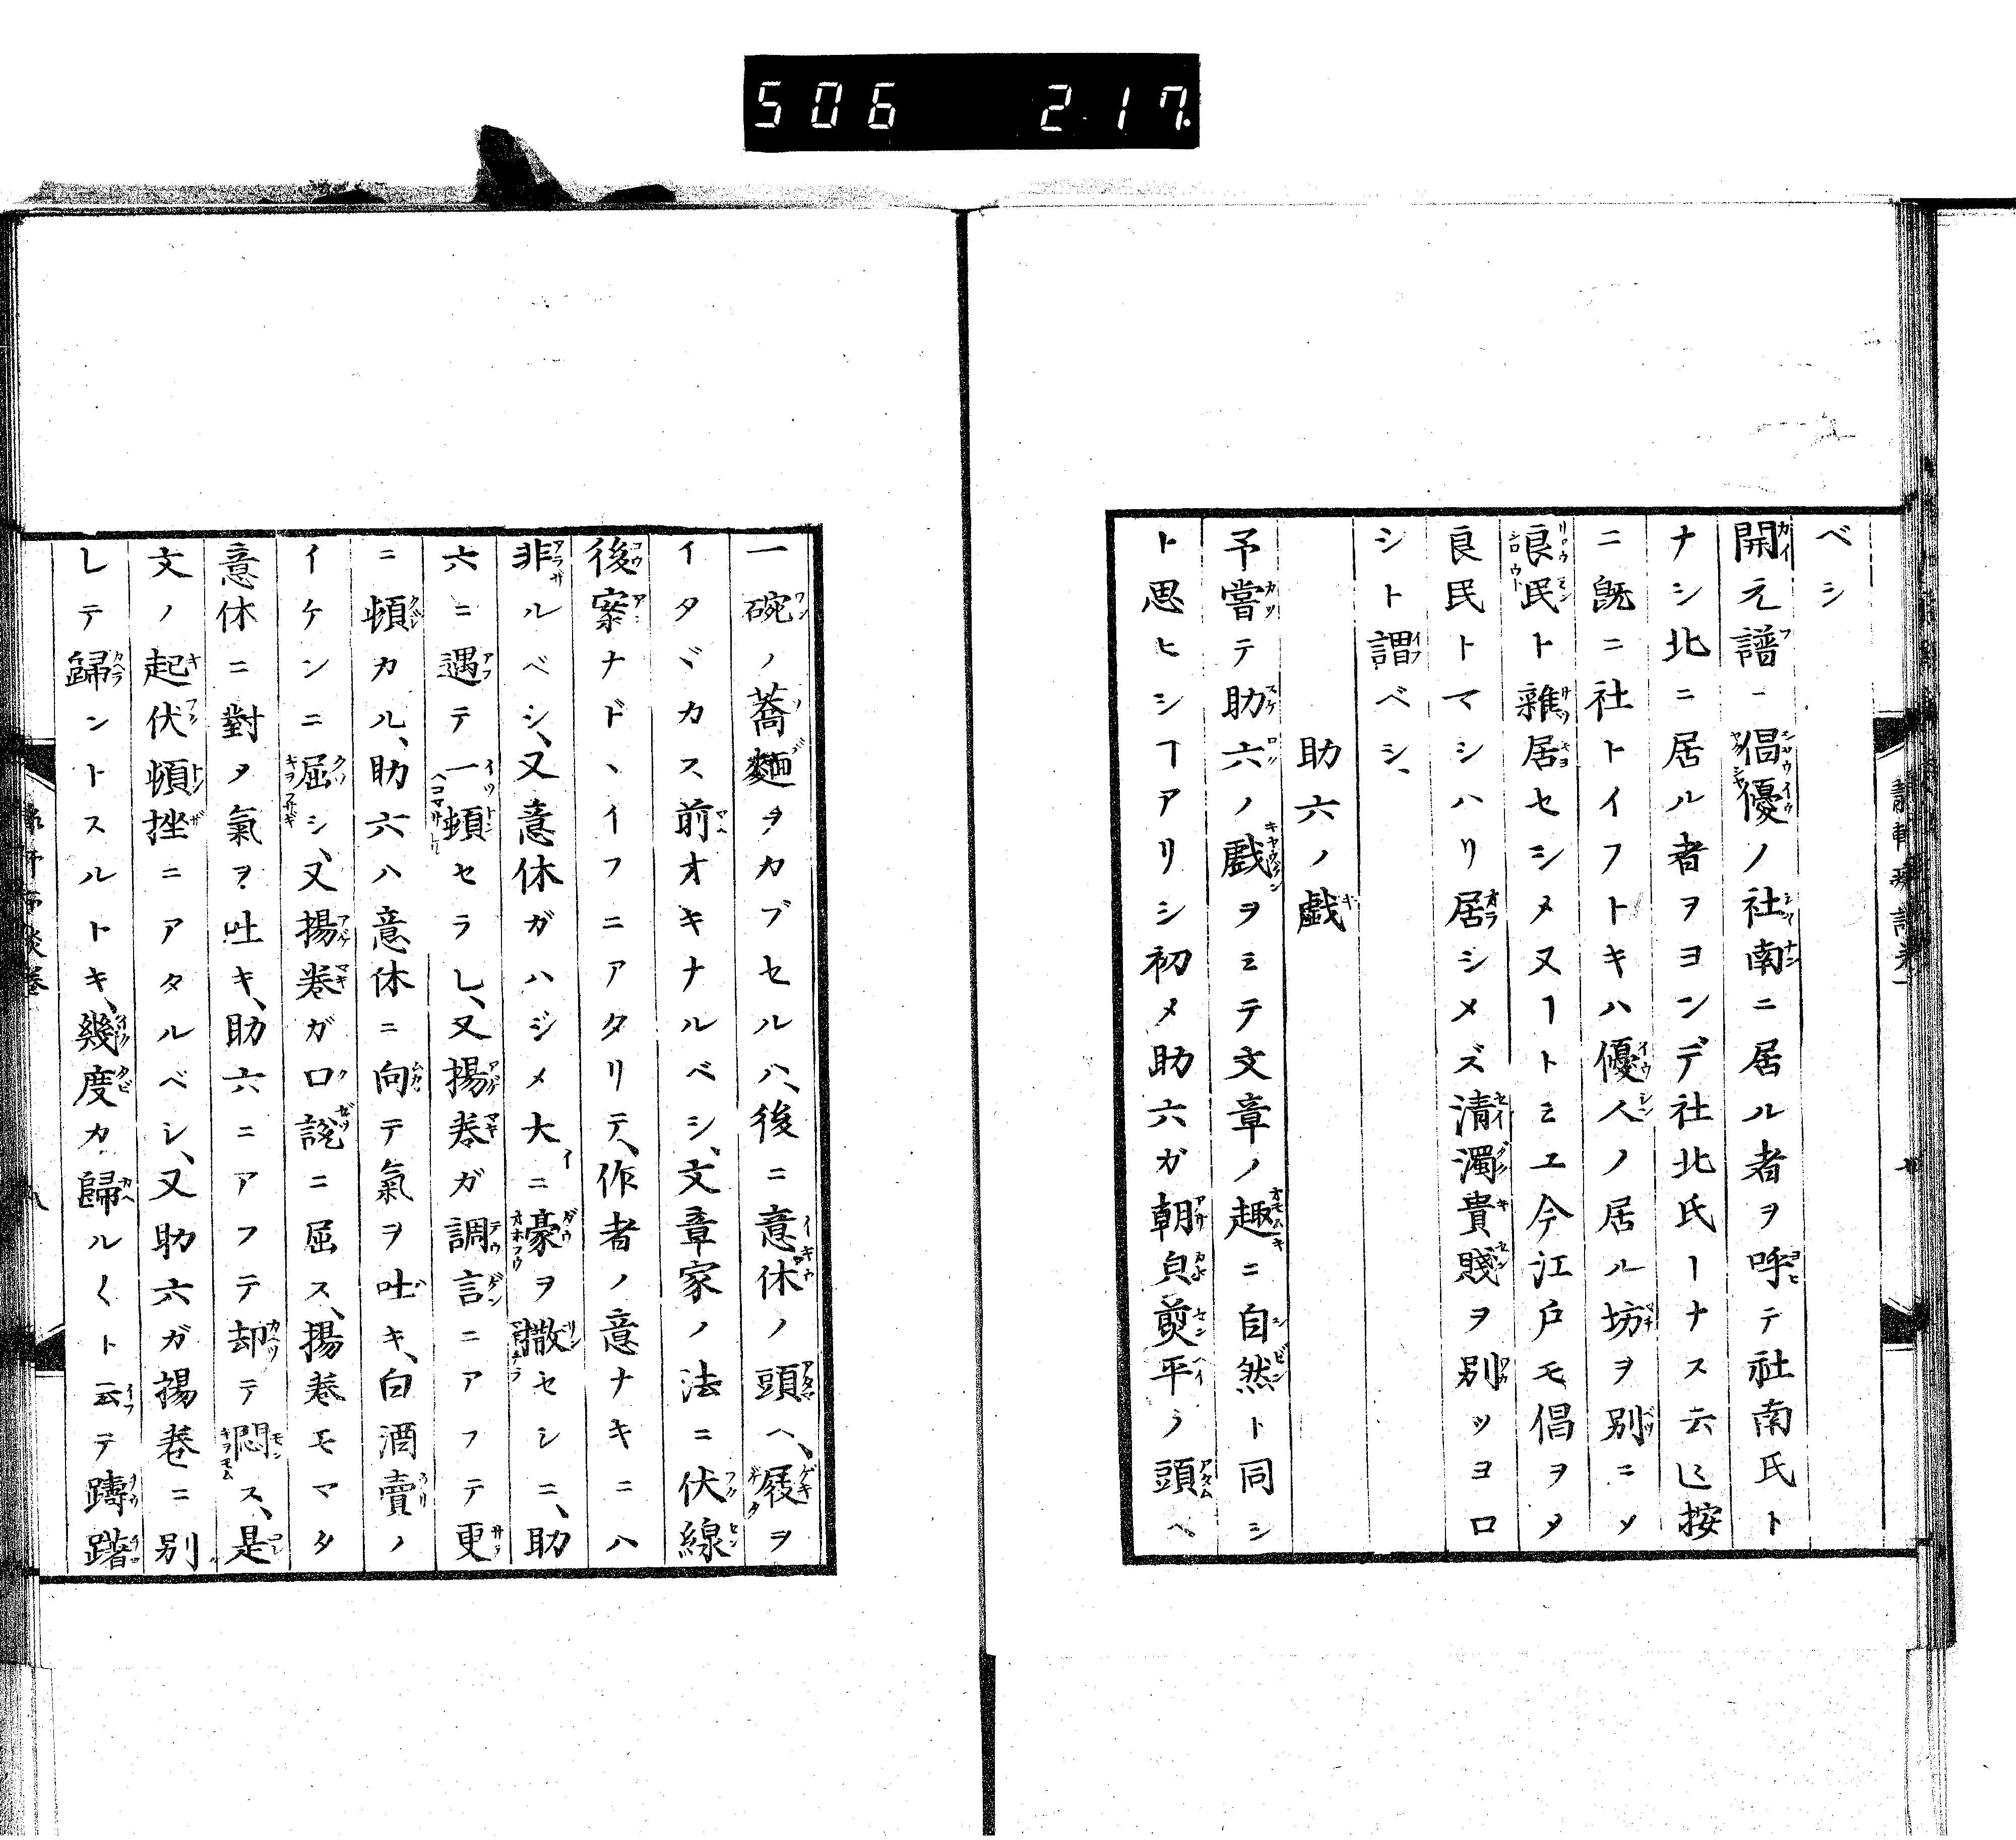 506 217
ベシ
開元譜ニ倡優ノ社南ニ居ル者ヲ呼テ社南氏ト
ナシ北ニ居ル者ヲヨンデ社北氏ーナス云〻按
ニ既ニ社トイフトキハ優人ノ居ル坊ヲ別ニソ
良民ト雜居セシメヌヿトミユ今江戸モ倡ヲメ
良民トマシハリ居シメズ清濁貴賤ヲ別ツヨロ
シト謂ベシ、
助六ノ戯
予嘗テ助六ノ戯ヲミテ文章ノ趣ニ自然ト同シ
ト思ヒシヿアリシ初メ助六ガ朝㒵煎平ノ頭ヘ
一碗ノ蕎麵ヲカブセルハ、後ニ意休ノ頭ヘ、屐ヲ
イタヾカス前オキナルベシ、文章家ノ法ニ伏線
後案ナドヽイフニアタリテ、作者ノ意ナキニハ
非ルベシ、又意休ガハジメ大ニ豪ヲ撒セシニ、助
六ニ遇テ一頓セラレ、又揚巻ガ調言ニアフテ更
ニ頓カル、助六ハ意休ニ向テ氣ヲ吐キ、白酒賣ノ
イケンニ屈シ、又揚巻ガ口説ニ屈ス、揚巻モマタ
意休ニ對タ氣ヲ吐キ、助六ニアフテ却テ悶ス、是
文ノ起伏頓挫ニアタルベシ、又助六ガ揚巻ニ別
レテ歸ントスルトキ、幾度カ歸ル〱ト云テ躊躇